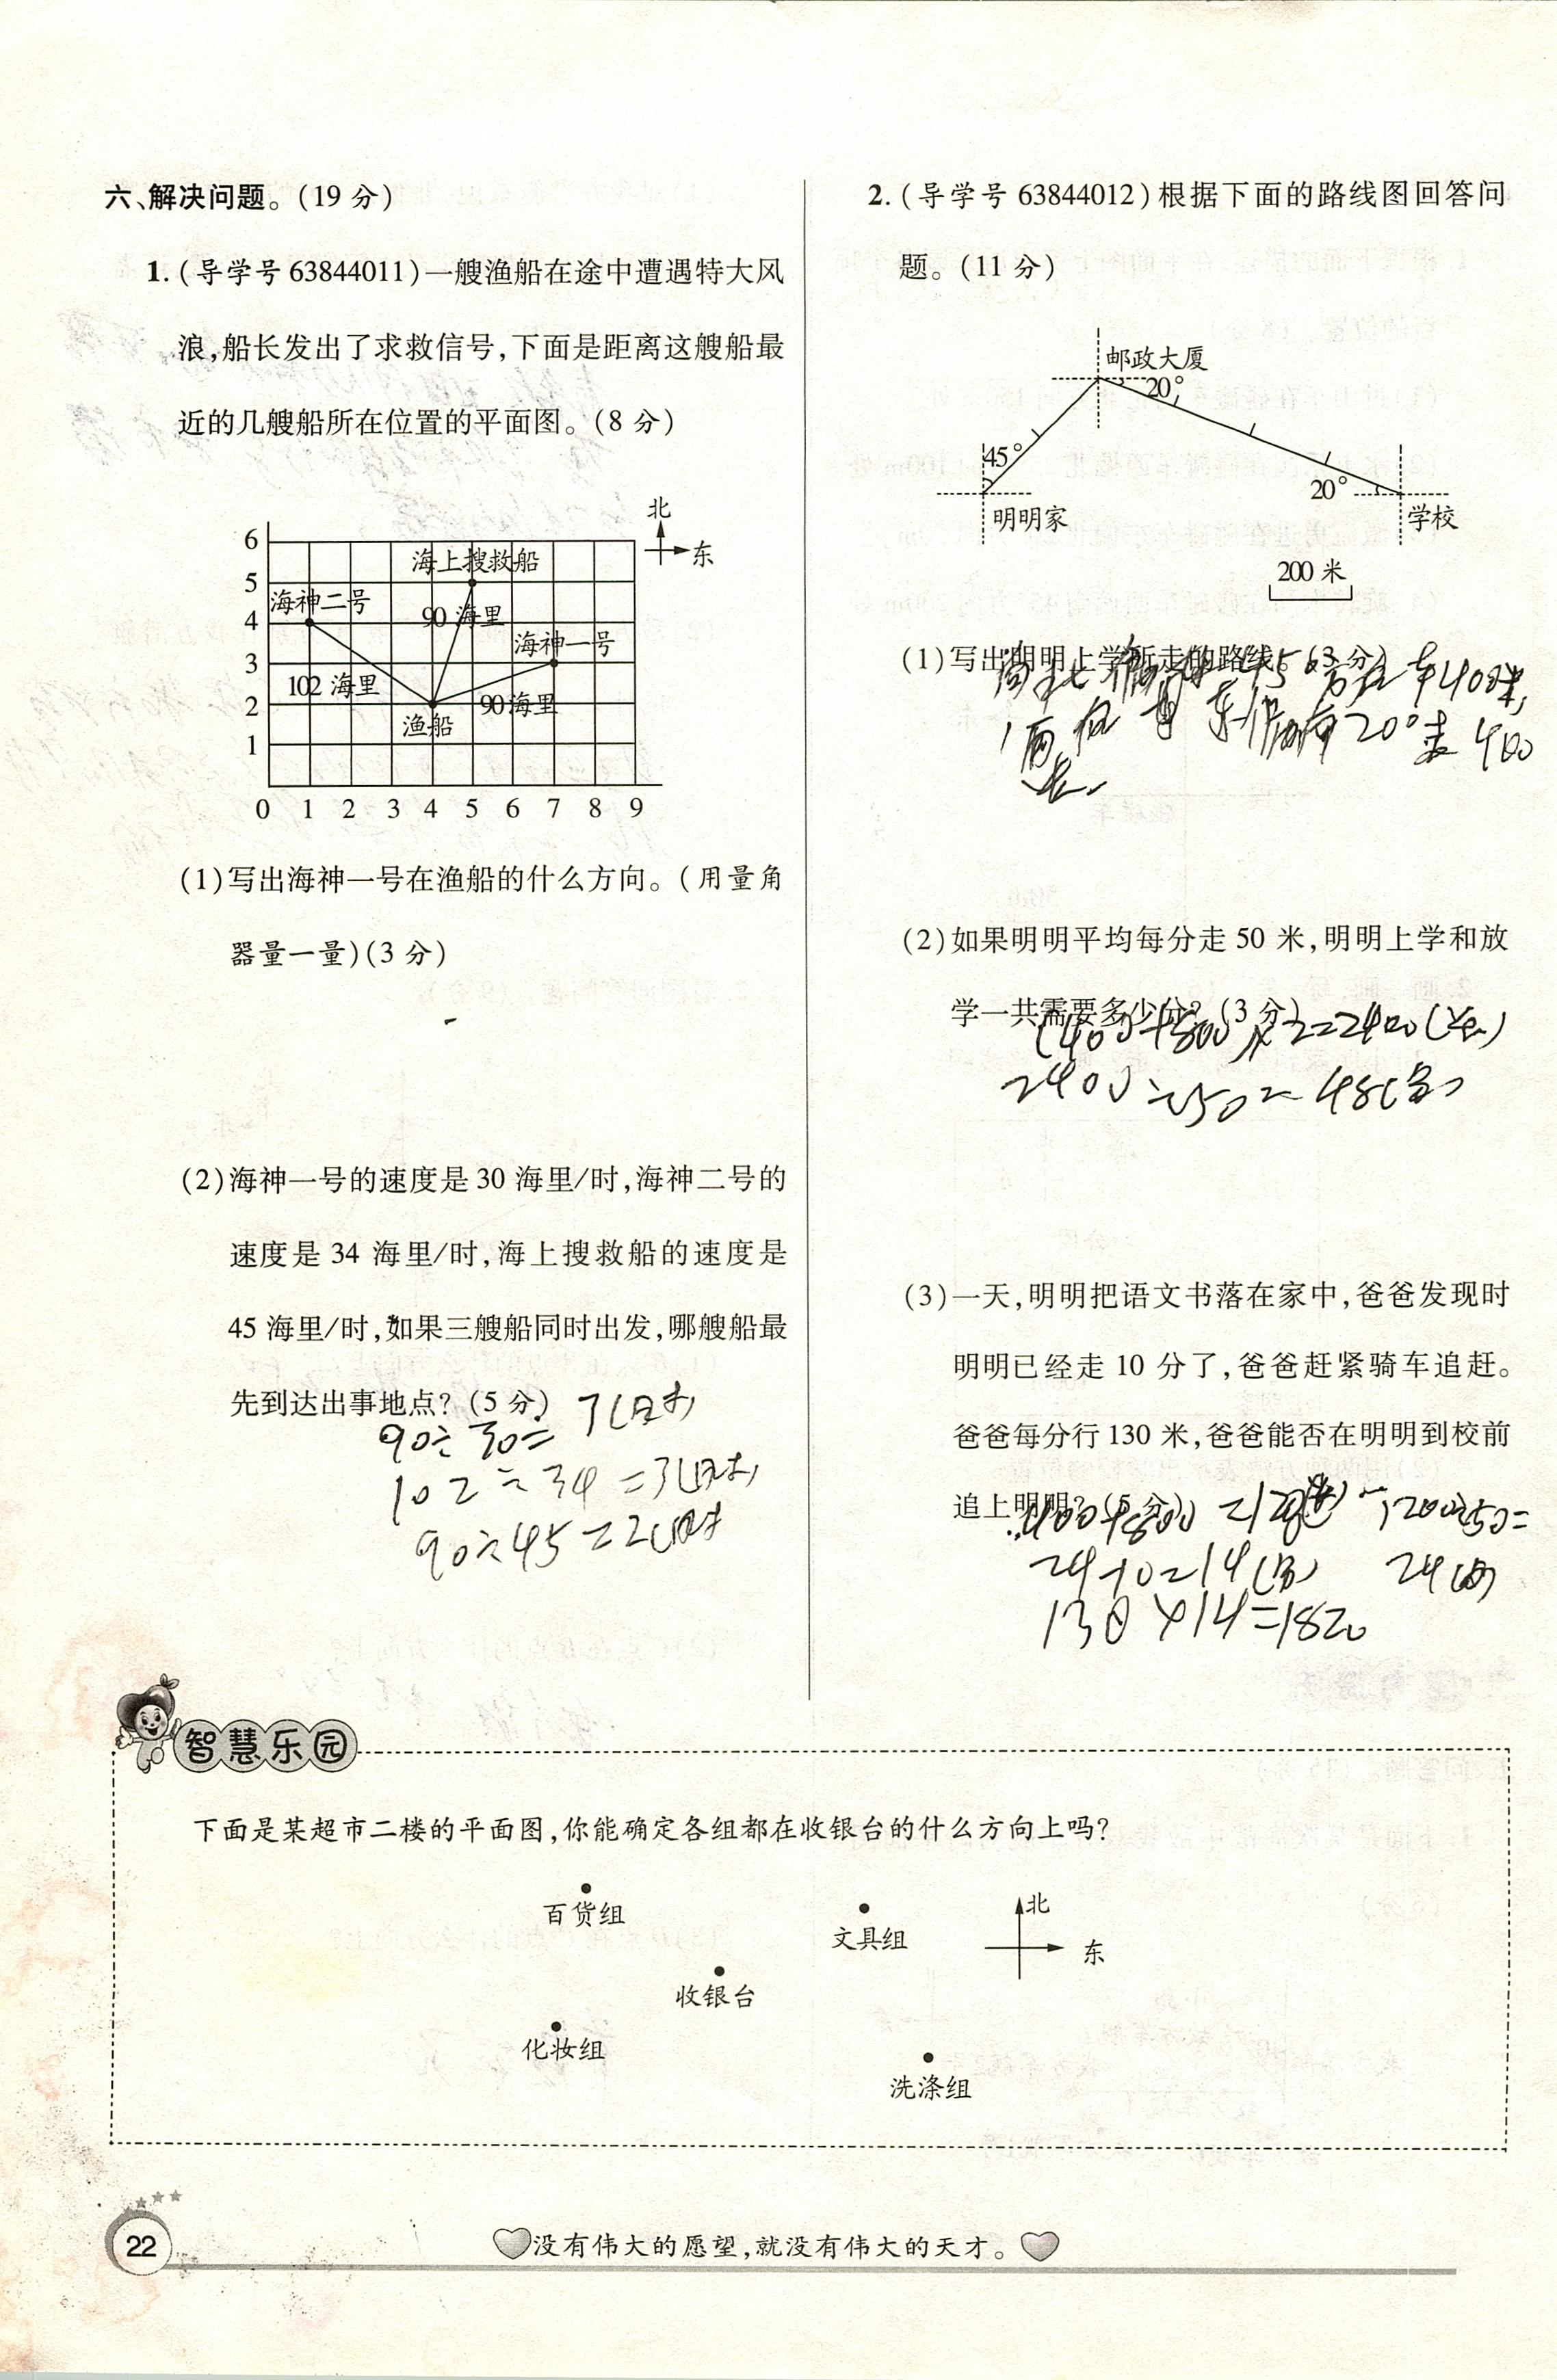 六、解决问题。(19 分)
1. (导学号 63844011)一艘渔船在途中遭遇特大风
浪,船长发出了求救信号,下面是距离这艘船最
近的几艘船所在位置的平面图。(8 分)
北
东
6
5
4
3
2
1
0 1 2 3 4 5 6 7 8 9
海上搜救船
海神二号
90 海里
海神一号
102 海里
90 海里
渔船
(1)写出海神一号在渔船的什么方向。(用量角
器量一量)(3 分)
(2)海神一号的速度是 30 海里/时,海神二号的
速度是 34 海里/时,海上搜救船的速度是
45 海里/时,如果三艘船同时出发,哪艘船最
先到达出事地点?(5 分)
90÷30=3(时)
102÷34=3(时)
90÷45=2(时)
2. (导学号 63844012)根据下面的路线图回答问
题。(11 分)
邮政大厦
20°
45°
20°
明明家
学校
200 米
(1)写出明明上学所走的路线。(3 分)
45°方向
20°走
(2)如果明明平均每分走 50 米,明明上学和放
学一共需要多少分?(3 分)
(400+800)×2=2400(米)
2400÷50=48(分)
(3)一天,明明把语文书落在家中,爸爸发现时
明明已经走 10 分了,爸爸赶紧骑车追赶。
爸爸每分行 130 米,爸爸能否在明明到校前
追上明明?(5 分)
1200÷50=
24-10=14(分) 24(分)
130×14=1820
智慧乐园
下面是某超市二楼的平面图,你能确定各组都在收银台的什么方向上吗?
百货组
文具组
北
东
收银台
化妆组
洗涤组
22
没有伟大的愿望,就没有伟大的天才。